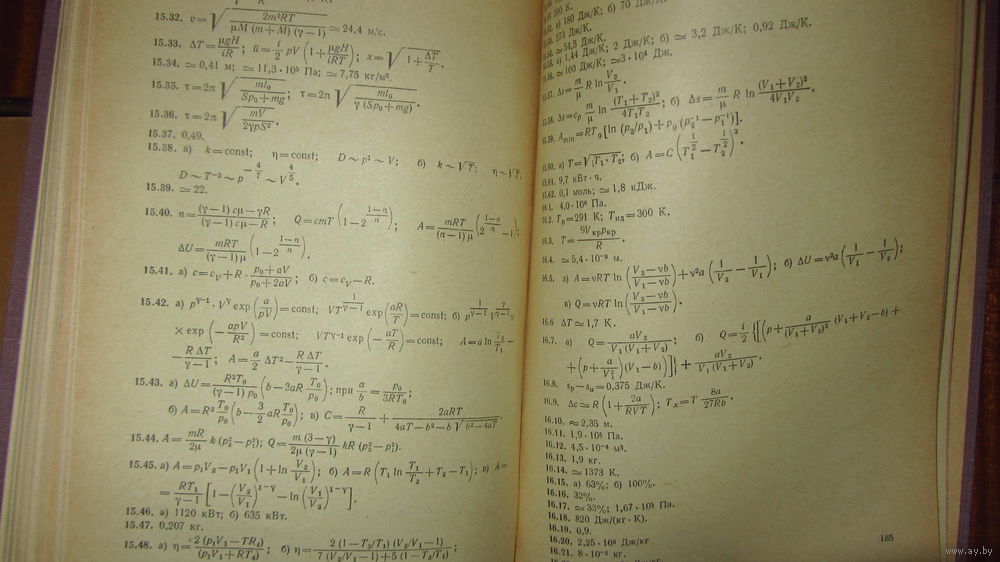 15.32. v=√(2m²RT / μM (m+M) (γ−1)) ≃24,4 м/с.
15.33. ΔT=μgH/iR; ū=i/2 pV (1+μgH/iRT); x=√(1+ΔT/T).
15.34. ≃0,41 м; ≃11,3·10⁵ Па; ≃7,75 кг/м³.
15.35. τ=2π√(ml₀/(Sp₀+mg)); τ=2π√(ml₀/γ (Sp₀+mg)).
15.36. τ=2π√(mV/2γpS²).
15.37. 0,49.
15.38. а) k=const; η=const; D∼p¹∼V; б) k∼√T; η∼√T;
D∼T⁻²∼p^(−4/7)∼V^(4/5).
15.39. ≃22.
15.40. n=((γ−1) cμ−γR)/((γ−1) cμ−R); Q=cmT (1−2^((1−n)/n)); A=mRT/((n−1) μ) (2^((1−n)/n)−1);
ΔU=mRT/((γ−1) μ) (1−2^((1−n)/n)).
15.41. а) c=c_V+R·(p₀+aV)/(p₀+2aV); б) c=c_V−R.
15.42. а) p^(γ−1)·V^γ exp(a/pV)=const; VT^(1/(γ−1)) exp(aR/T)=const; б) p^(1/(γ−1)) V^(γ/(γ−1))×
×exp(−apV/R²)=const; VT^(γ−1) exp(−aT/R)=const; A=a ln T₂/T₁−
−R ΔT/(γ−1); A=a/2 ΔT²−R ΔT/(γ−1).
15.43. а) ΔU=R²T₀/((γ−1) p₀) (b−3aR T₀/p₀); при a/b=p₀/3RT₀;
б) A=R² T₀/p₀ (b−3/2 aR T₀/p₀); в) C=R/(γ−1)+2aRT/(4aT−b²−b√(b²−4aT)).
15.44. A=mR/2μ k (p₂²−p₁²); Q=m (3−γ)/2μ (γ−1) kR (p₂²−p₁²).
15.45. а) A=p₁V₂−p₁V₁(1+ln V₂/V₁); б) A=R (T₁ ln T₁/T₂+T₂−T₁); в) A=
=RT₁/(γ−1) [1−(V₂/V₁)^(1−γ)−ln(V₁/V₂)^(1−γ)].
15.46. а) 1120 кВт; б) 635 кВт.
15.47. 0,207 кг.
15.48. а) η=2 (p₁V₁−TR₄)/(p₁V₁+RT₄); б) η=2 (1−T₃/T₁) (V₂/V₁−1)/(7 (V₂/V₁−1)+5 (1−T₃/T₁));
200 К.
а) 180 Дж/К; б) 70 Дж/К.
273 Дж/К.
≃54,5 Дж/К.
а) 1,44 Дж/К; 2 Дж/К; б) ≃3,2 Дж/К; 0,92 Дж/К.
≃100 Дж/К; ≃3·10⁴ Дж.
Δs=m/μ R ln V₂/V₁.
15.58. Δs=c_p m/μ ln (T₁+T₂)²/4T₁T₂; б) Δs=m/μ R ln (V₁+V₂)²/4V₁V₂.
15.59. A_min=RT₀[ln (p₂/p₁)+p₀ (p₂⁻¹−p₁⁻¹)].
15.60. а) T=√(T₁·T₂); б) A=C (T₁^(1/2)−T₂^(1/2))².
15.61. 9,7 кВт·ч.
15.62. 0,1 моль; ≃1,8 кДж.
16.1. 4,0·10⁵ Па.
16.2. T_р=291 К; T_пд=300 К.
16.3. T=9V_кр p_кр/R.
16.4. ≃5,4·10⁻⁹ м.
16.5. а) A=νRT ln ((V₂−νb)/(V₁−νb))+ν²a (1/V₂−1/V₁); б) ΔU=ν²a(1/V₁−1/V₂);
в) Q=νRT ln ((V₂−νb)/(V₁−νb)).
16.6 ΔT≃1,7 К.
16.7. а) Q=aV₂/V₁(V₁+V₂); б) Q=i/2{[(p+a/(V₁+V₂)² (V₁+V₂−b)+
+(p+a/V₁²)(V₁−b))]}+aV₂/V₁(V₁+V₂).
16.8. s_р−s_а=0,375 Дж/К.
16.9. Δc≃R (1+2a/RVT); T_x=T 8a/27Rb.
16.10. ≈2,35 м.
16.11. 1,9·10⁵ Па.
16.12. 4,5·10⁻⁴ м³.
16.13. 1,9 кг.
16.14. ≃1373 К.
16.15. а) 63%; б) 100%.
16.16. 32%.
16.17. ≃33%; 1,67·10⁵ Па.
16.18. 820 Дж/(кг·К).
16.19. 0,9.
16.20. 2,25·10⁶ Дж/кг
16.21. 8·10⁻² кг.
185
www.ay.by